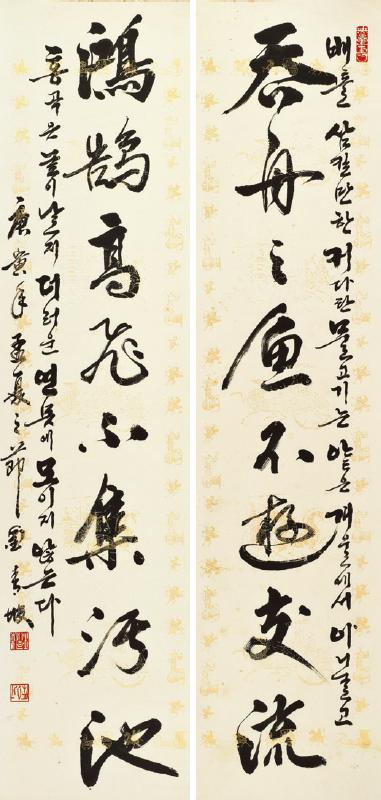 배를 삼킬만한 커다란 물고기는 얕은 개울에서 아니 놀고
吞舟之魚不遊支流
鴻鵠高飛不集汚池
홍곡은 높이 날지 더러운 연못에 모이지 않는다
庚寅年孟夏之節 青坡